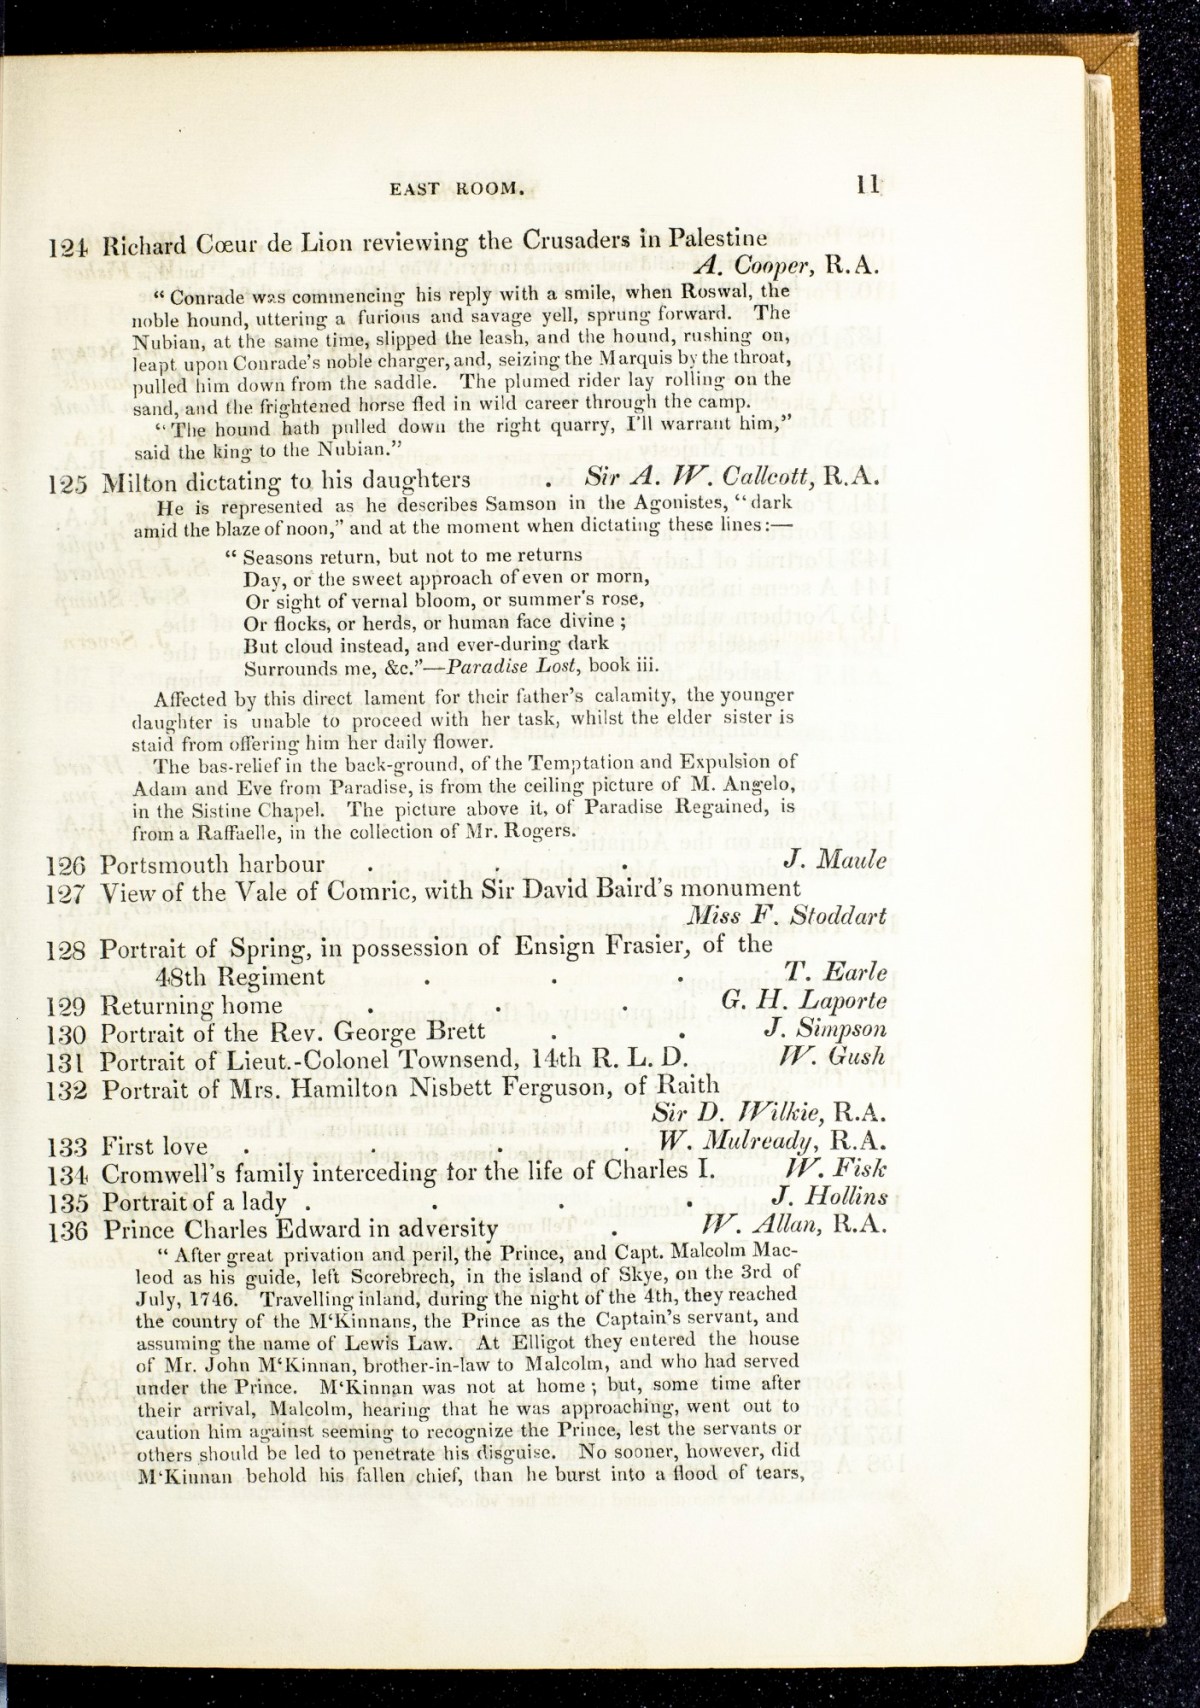 EAST ROOM. 11
124 Richard Cœur de Lion reviewing the Crusaders in Palestine
A. Cooper, R.A.
“ Conrade was commencing his reply with a smile, when Roswal, the
noble hound, uttering a furious and savage yell, sprung forward. The
Nubian, at the same time, slipped the leash, and the hound, rushing on,
leapt upon Conrade’s noble charger, and, seizing the Marquis by the throat,
pulled him down from the saddle. The plumed rider lay rolling on the
sand, and the frightened horse fled in wild career through the camp.
“ The hound hath pulled down the right quarry, I’ll warrant him,”
said the king to the Nubian.”
125 Milton dictating to his daughters . Sir A. W. Callcott, R.A.
He is represented as he describes Samson in the Agonistes, “ dark
amid the blaze of noon,” and at the moment when dictating these lines:—
“ Seasons return, but not to me returns
Day, or the sweet approach of even or morn,
Or sight of vernal bloom, or summer’s rose,
Or flocks, or herds, or human face divine ;
But cloud instead, and ever-during dark
Surrounds me, &c.”—Paradise Lost, book iii.
Affected by this direct lament for their father’s calamity, the younger
daughter is unable to proceed with her task, whilst the elder sister is
staid from offering him her daily flower.
The bas-relief in the back-ground, of the Temptation and Expulsion of
Adam and Eve from Paradise, is from the ceiling picture of M. Angelo,
in the Sistine Chapel. The picture above it, of Paradise Regained, is
from a Raffaelle, in the collection of Mr. Rogers.
126 Portsmouth harbour . . . J. Maule
127 View of the Vale of Comric, with Sir David Baird’s monument
Miss F. Stoddart
128 Portrait of Spring, in possession of Ensign Frasier, of the
48th Regiment . . . T. Earle
129 Returning home . . . G. H. Laporte
130 Portrait of the Rev. George Brett . . J. Simpson
131 Portrait of Lieut.-Colonel Townsend, 14th R. L. D. W. Gush
132 Portrait of Mrs. Hamilton Nisbett Ferguson, of Raith
Sir D. Wilkie, R.A.
133 First love . . . . W. Mulready, R.A.
134 Cromwell’s family interceding for the life of Charles I. W. Fisk
135 Portrait of a lady . . . . J. Hollins
136 Prince Charles Edward in adversity . W. Allan, R.A.
“ After great privation and peril, the Prince, and Capt. Malcolm Mac-
leod as his guide, left Scorebrech, in the island of Skye, on the 3rd of
July, 1746. Travelling inland, during the night of the 4th, they reached
the country of the M‘Kinnans, the Prince as the Captain’s servant, and
assuming the name of Lewis Law. At Elligot they entered the house
of Mr. John M‘Kinnan, brother-in-law to Malcolm, and who had served
under the Prince. M‘Kinnan was not at home ; but, some time after
their arrival, Malcolm, hearing that he was approaching, went out to
caution him against seeming to recognize the Prince, lest the servants or
others should be led to penetrate his disguise. No sooner, however, did
M‘Kinnan behold his fallen chief, than he burst into a flood of tears,